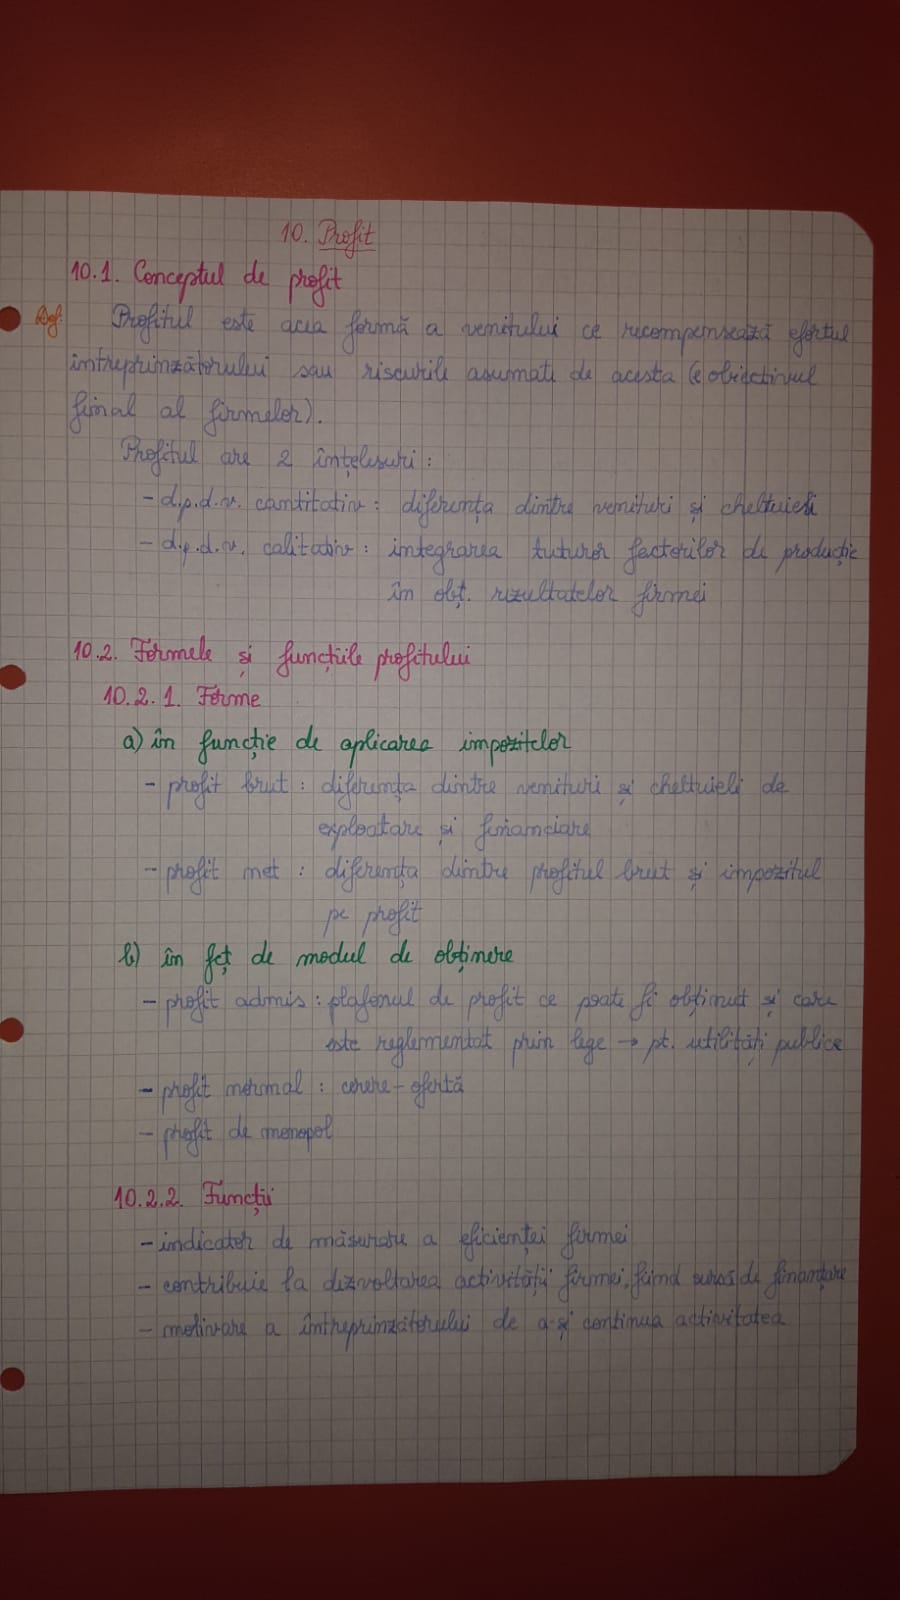 10. Profit
10.1. Conceptul de profit
Def: Profitul este acea formă a venitului ce recompensează efortul
întreprinzătorului sau riscurile asumate de acesta (e obiectivul
final al firmelor).
Profitul are 2 înțelesuri:
- d.p.d.v. cantitativ: diferența dintre venituri și cheltuieli
- d.p.d.v. calitativ: integrarea tuturor factorilor de producție
în obț. rezultatelor firmei
10.2. Formele și funcțiile profitului
10.2.1. Forme
a) în funcție de aplicarea impozitelor
- profit brut: diferența dintre venituri și cheltuieli de
exploatare și financiare
- profit net: diferența dintre profitul brut și impozitul
pe profit
b) în fcț de modul de obținere
- profit admis: plafonul de profit ce poate fi obținut și care
este reglementat prin lege → pt. utilități publice
- profit normal: cerere-ofertă
- profit de monopol
10.2.2. Funcții
- indicator de măsurare a eficienței firmei
- contribuie la dezvoltarea activității firmei, fiind sursă de finanțare
- motivare a întreprinzătorului de a-și continua activitatea